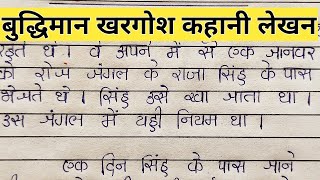 बुद्धिमान खरगोश कहानी लेखन
रहते थे। वे अपने में से एक जानवर
को रोज जंगल के राजा सिंह के पास
भेजते थे। सिंह उसे खा जाता था।
उस जंगल में यही नियम था।
एक दिन सिंह के पास जाने